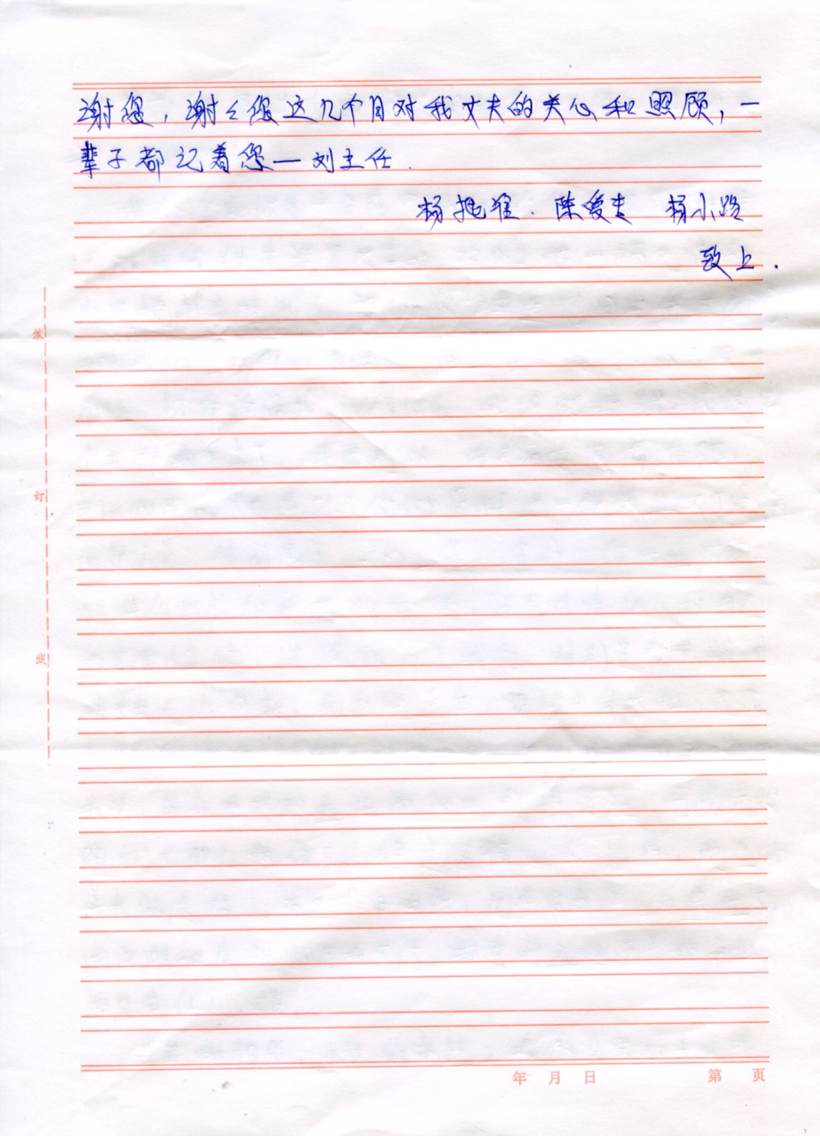 谢您,谢々您这几个月对我丈夫的关心和照顾,一
辈子都记着您—刘主任.
杨 陈爱 杨小玲
致上.
装
订
线
年 月 日 第 页